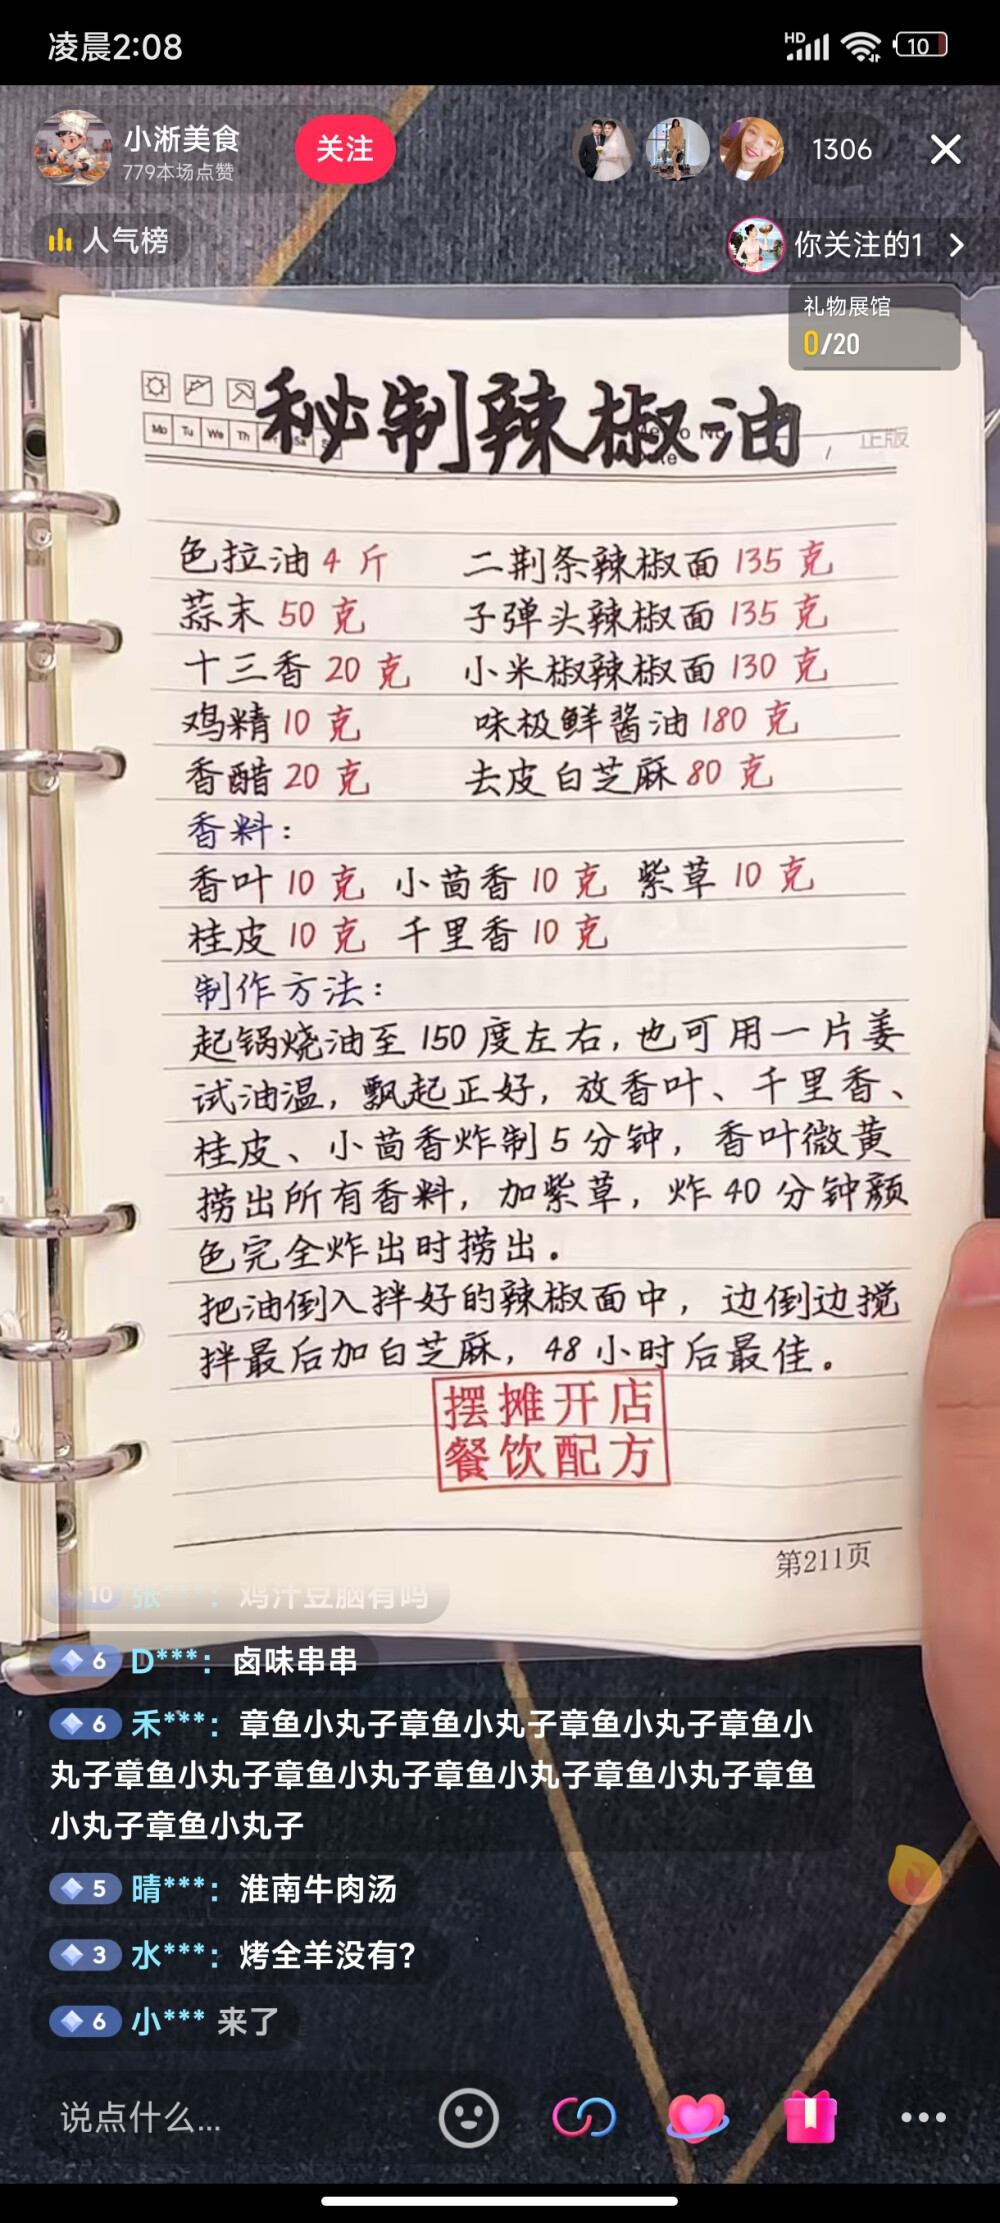 凌晨2:08
HD
10
小浙美食
779本场点赞
关注
1306
人气榜
你关注的1
礼物展馆
0/20
Mo Tu We Th
秘制辣椒油
正版
色拉油 4 斤 二荆条辣椒面 135 克
蒜末 50 克 子弹头辣椒面 135 克
十三香 20 克 小米椒辣椒面 130 克
鸡精 10 克 味极鲜酱油 180 克
香醋 20 克 去皮白芝麻 80 克
香料：
香叶 10 克 小茴香 10 克 紫草 10 克
桂皮 10 克 千里香 10 克
制作方法：
起锅烧油至 150 度左右，也可用一片姜
试油温，飘起正好，放香叶、千里香、
桂皮、小茴香炸制 5 分钟，香叶微黄
捞出所有香料，加紫草，炸 40 分钟颜
色完全炸出时捞出。
把油倒入拌好的辣椒面中，边倒边搅
拌最后加白芝麻，48 小时后最佳。
摆摊开店
餐饮配方
第211页
10 张***：鸡汁豆脑有吗
6 D***：卤味串串
6 禾***：章鱼小丸子章鱼小丸子章鱼小丸子章鱼小
丸子章鱼小丸子章鱼小丸子章鱼小丸子章鱼小丸子章鱼
小丸子章鱼小丸子
5 晴***：淮南牛肉汤
3 水***：烤全羊没有?
6 小*** 来了
说点什么...